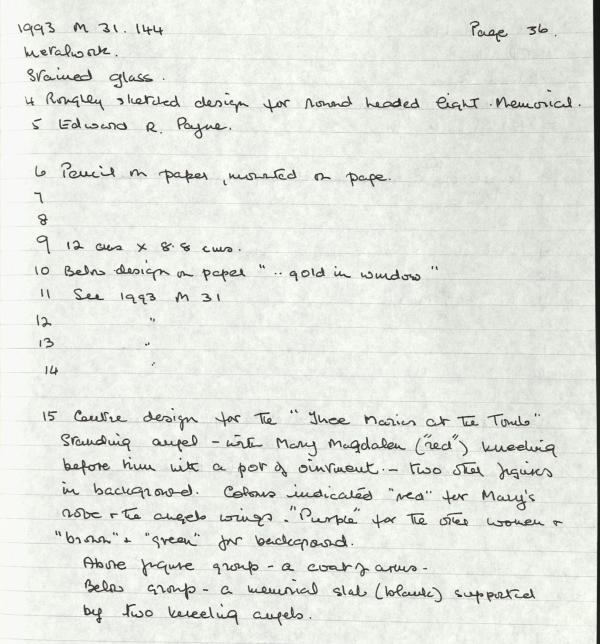 1993 M 31.144 Page 36.
Metalwork.
Stained glass.
4 Roughly sketched design for round headed light. Memorial.
5 Edward R. Payne.
6 Pencil on paper, mounted on page.
7
8
9 12 cms x 8.8 cms.
10 Below design on paper " .. gold in window "
11 See 1993 M 31
12 "
13 "
14 "
15 Centre design for the "Three Maries at the Tomb"
Standing angel - with Mary Magdalen ("red") kneeling
before him with a pot of ointment. - two other figures
in background. Colours indicated "red" for Mary's
robe + the angels wings. "Purple" for the other women +
"brown" + "green" for background.
Above figure group - a coat of arms -
Below group - a memorial slab (blank) supported
by two kneeling angels.